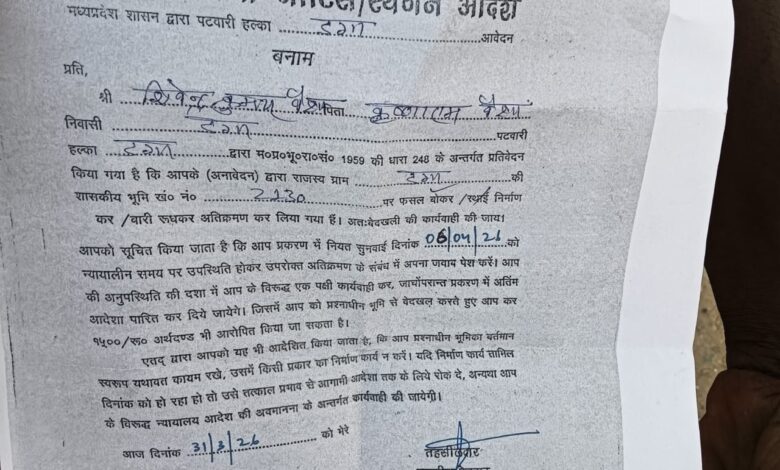 नोटिस/स्थगन आदेश
मध्यप्रदेश शासन द्वारा पटवारी हल्का डगा आवेदन
बनाम
प्रति,
श्री शिवेन्द्र कुमार वैश्य पिता कृष्णाराम वैश्य
निवासी डगा पटवारी
हल्का डगा द्वारा म०प्र०भू०रा०सं० 1959 की धारा 248 के अन्तर्गत प्रतिवेदन
किया गया है कि आपके (अनावेदन) द्वारा राजस्व ग्राम डगा की
शासकीय भूमि खं० नं० 2130 पर फसल बोकर /स्थाई निर्माण
कर /बारी रूधकर अतिक्रमण कर लिया गया हैं। अतःबेदखली की कार्यवाही की जाय।
आपको सूचित किया जाता है कि आप प्रकरण में नियत सुनवाई दिनांक 06/04/26 को
न्यायालीन समय पर उपस्थिति होकर उपरोक्त अतिक्रमण के संबंध में अपना जवाब पेश करें। आप
की अनुपस्थिति की दशा में आप के विरूद्ध एक पक्षी कार्यवाही कर, जाचोंपरान्त प्रकरण में अतिंम
आदेशा पारित कर दिये जायेगे। जिसमें आप को प्रश्नाधीन भूमि से वेदखल करते हुए आप कर
१५००/रू० अर्थदण्ड भी आरोपित किया जा सकता है।
एतद् द्वारा आपको यह भी आदेशित किया जाता है, कि आप प्रश्नाधीन भूमिका वर्तमान
स्वरूप यथावत कायम रखे, उसमें किसी प्रकार का निर्माण कार्य न करें। यदि निर्माण कार्य तामिल
दिनांक को हो रहा हो तो उसे तत्काल प्रभाव से आगामी आदेशा तक के लिये रोक दे, अन्यथा आप
के विरूद्ध न्यायालय आदेश की अवमानना के अन्तर्गत कार्यवाही की जायेगी।
आज दिनांक 31/3/26 को मेरे
तहसीलदार